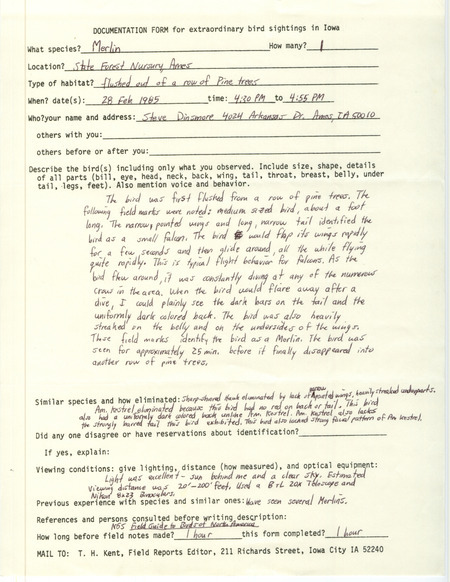 DOCUMENTATION FORM for extraordinary bird sightings in Iowa
What species? Merlin How many? 1
Location? State Forest Nursury Ames
Type of habitat? flushed out of a row of Pine trees
When? date(s): 28 Feb 1985 time: 4:30 PM to 4:55 PM
Who?your name and address: Steve Dinsmore 4024 Arkansas Dr. Ames, IA 50010
others with you:
others before or after you:
Describe the bird(s) including only what you observed. Include size, shape, details
of all parts (bill, eye, head, neck, back, wing, tail, throat, breast, belly, under
tail, legs, feet). Also mention voice and behavior.
The bird was first flushed from a row of pine trees. The
following field marks were noted: medium sized bird, about a foot
long. The narrow, pointed wings and long, narrow tail identified the
bird as a small falcon. The bird would flap its wings rapidly
for a few seconds and then glide around, all the while flying
quite rapidly. This is typical flight behavior for falcons. As the
bird flew around, it was constantly diving at any of the numerous
crows in the area. When the bird would flare away after a
dive, I could plainly see the dark bars on the tail and the
uniformly dark colored back. The bird was also heavily
streaked on the belly and on the undersides of the wings.
These field marks identify the bird as a Merlin. The bird was
seen for approximately 25 min. before it finally disappeared into
another row of pine trees.
Similar species and how eliminated: Sharp-shinned Hawk eliminated by lack of narrow pointed wings, heavily streaked underparts.
Am. Kestrel eliminated because this bird had no red on back or tail. This bird
also had a uniformly dark colored back unlike Am. Kestrel. Am. Kestrel also lacks
the strongly barred tail this bird exhibited. This bird also lacked strong facial pattern of Am Kestrel.
Did any one disagree or have reservations about identification?
If yes, explain:
Viewing conditions: give lighting, distance (how measured), and optical equipment:
Light was excellent - sun behind me and a clear sky. Estimated
Viewing distance was 20'-200 feet. Used a B+L 20x Telescope and
Nikon 8x23 Binoculars.
Previous experience with species and similar ones: Have seen several Merlins.
References and persons consulted before writing description:
NGS Field Guide to Birds of North America
How long before field notes made? 1 hour this form completed? 1 hour
MAIL TO: T. H. Kent, Field Reports Editor, 211 Richards Street, Iowa City IA 52240